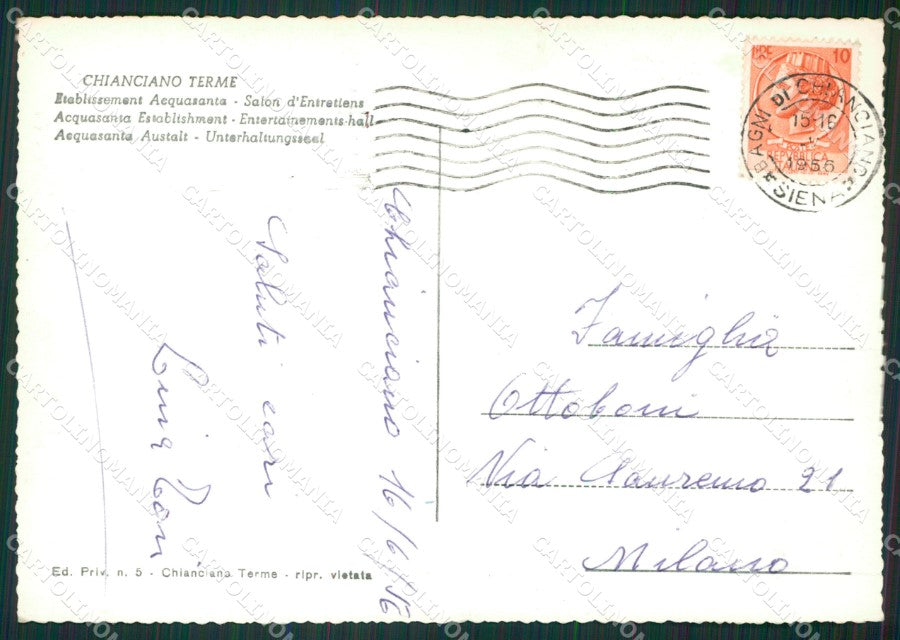 CHIANCIANO TERME
Etablissement Acquasanta - Salon d'Entretiens
Acquasanta Establishment - Entertainements-hall
Acquasanta Austalt - Unterhaltungsseal
LIRE 10
BAGNI DI CHIANCIANO
15-16
1956
SIENA
REPVBBLICA
Chianciano 16/6/56
Saluti cari
Famiglia
Ottoboni
Via Sanremo 21
Milano
Ed. Priv. n. 5 - Chianciano Terme - ripr. vietata
CARTOLINOMANIA